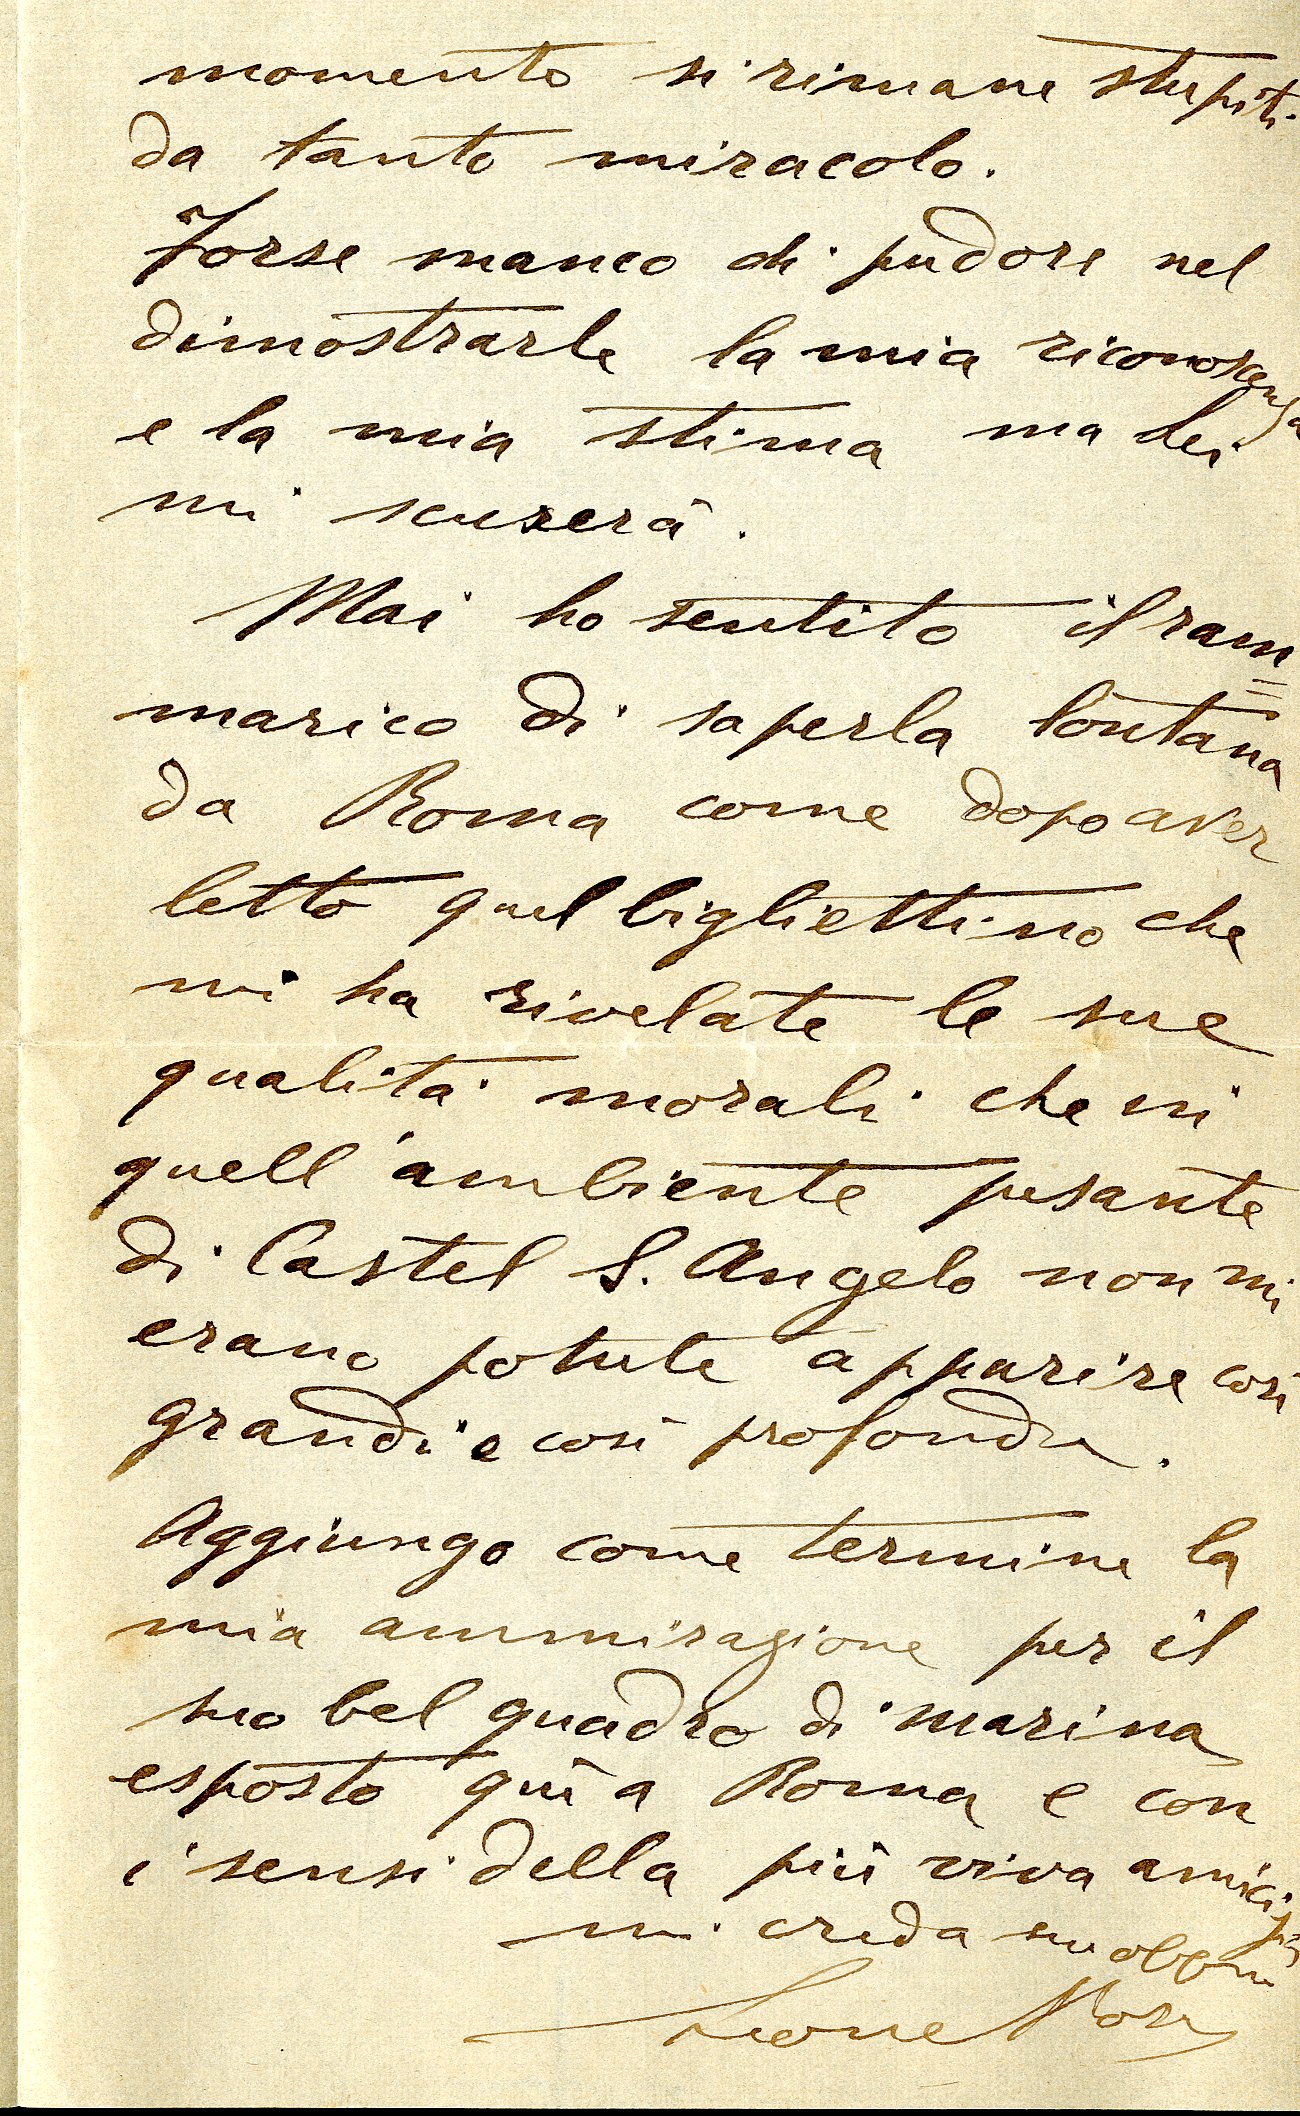 momento si rimane stupiti
da tanto miracolo.
Forse manco di pudore nel
dimostrarle la mia riconoscenza
e la mia stima ma Lei
mi scuserà.
Mai ho sentito il ram=
marico di saperla lontana
da Roma come dopo aver
letto quel bigliettino che
mi ha rivelate le sue
qualità morali che in
quell'ambiente pesante
di Castel S. Angelo non mi
erano potute apparire così
grandi e così profonde.
Aggiungo come termine la
mia ammirazione per il
suo bel quadro di marina
esposto quì a Roma e con
i sensi della più viva amicizia
mi creda suo
Leone